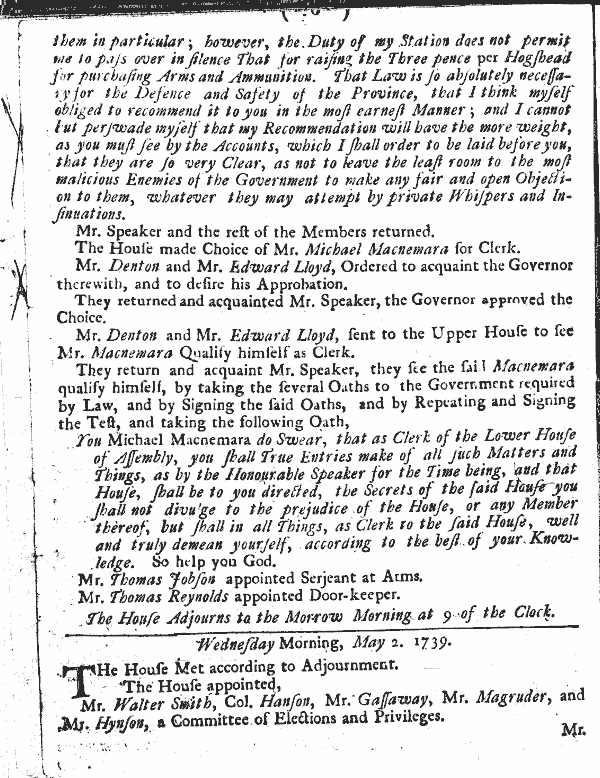 them in particular; however, the Duty of my Station does not permit
me to paſs over in ſilence That for raiſing the Three pence per Hogſhead
for purchaſing Arms and Ammunition. That Law is ſo abſolutely neceſſa-
ry for the Defence and Safety of the Province, that I think myſelf
obliged to recommend it to you in the moſt earneſt Manner; and I cannot
but perſwade myſelf that my Recommendation will have the more weight,
as you muſt ſee by the Accounts, which I ſhall order to be laid before you,
that they are ſo very Clear, as not to leave the leaſt room to the moſt
malicious Enemies of the Government to make any fair and open Objecti-
on to them, whatever they may attempt by private Whiſpers and In-
ſinuations.
Mr. Speaker and the reſt of the Members returned.
The Houſe made Choice of Mr. Michael Macnemara for Clerk.
Mr. Denton and Mr. Edward Lloyd, Ordered to acquaint the Governor
therewith, and to deſire his Approbation.
They returned and acquainted Mr. Speaker, the Governor approved the
Choice.
Mr. Denton and Mr. Edward Lloyd, ſent to the Upper Houſe to ſee
Mr. Macnemara Qualify himſelf as Clerk.
They return and acquaint Mr. Speaker, they ſee the ſaid Macnemara
qualify himſelf, by taking the ſeveral Oaths to the Government required
by Law, and by Signing the ſaid Oaths, and by Repeating and Signing
the Teſt, and taking the following Oath,
You Michael Macnemara do Swear, that as Clerk of the Lower Houſe
of Aſſembly, you ſhall True Entries make of all ſuch Matters and
Things, as by the Honourable Speaker for the Time being, and that
Houſe, ſhall be to you directed, the Secrets of the ſaid Houſe you
ſhall not divulge to the prejudice of the Houſe, or any Member
thereof, but ſhall in all Things, as Clerk to the ſaid Houſe, well
and truly demean yourſelf, according to the beſt of your Know-
ledge. So help you God.
Mr. Thomas Jobſon appointed Serjeant at Arms.
Mr. Thomas Reynolds appointed Door-keeper.
The Houſe Adjourns to the Morrow Morning at 9 of the Clock.
Wedneſday Morning, May 2. 1739.
THe Houſe Met according to Adjournment.
The Houſe appointed,
Mr. Walter Smith, Col. Hanſon, Mr. Gaſſaway, Mr. Magruder, and
Mr. Hynſon, a Committee of Elections and Privileges.
Mr.